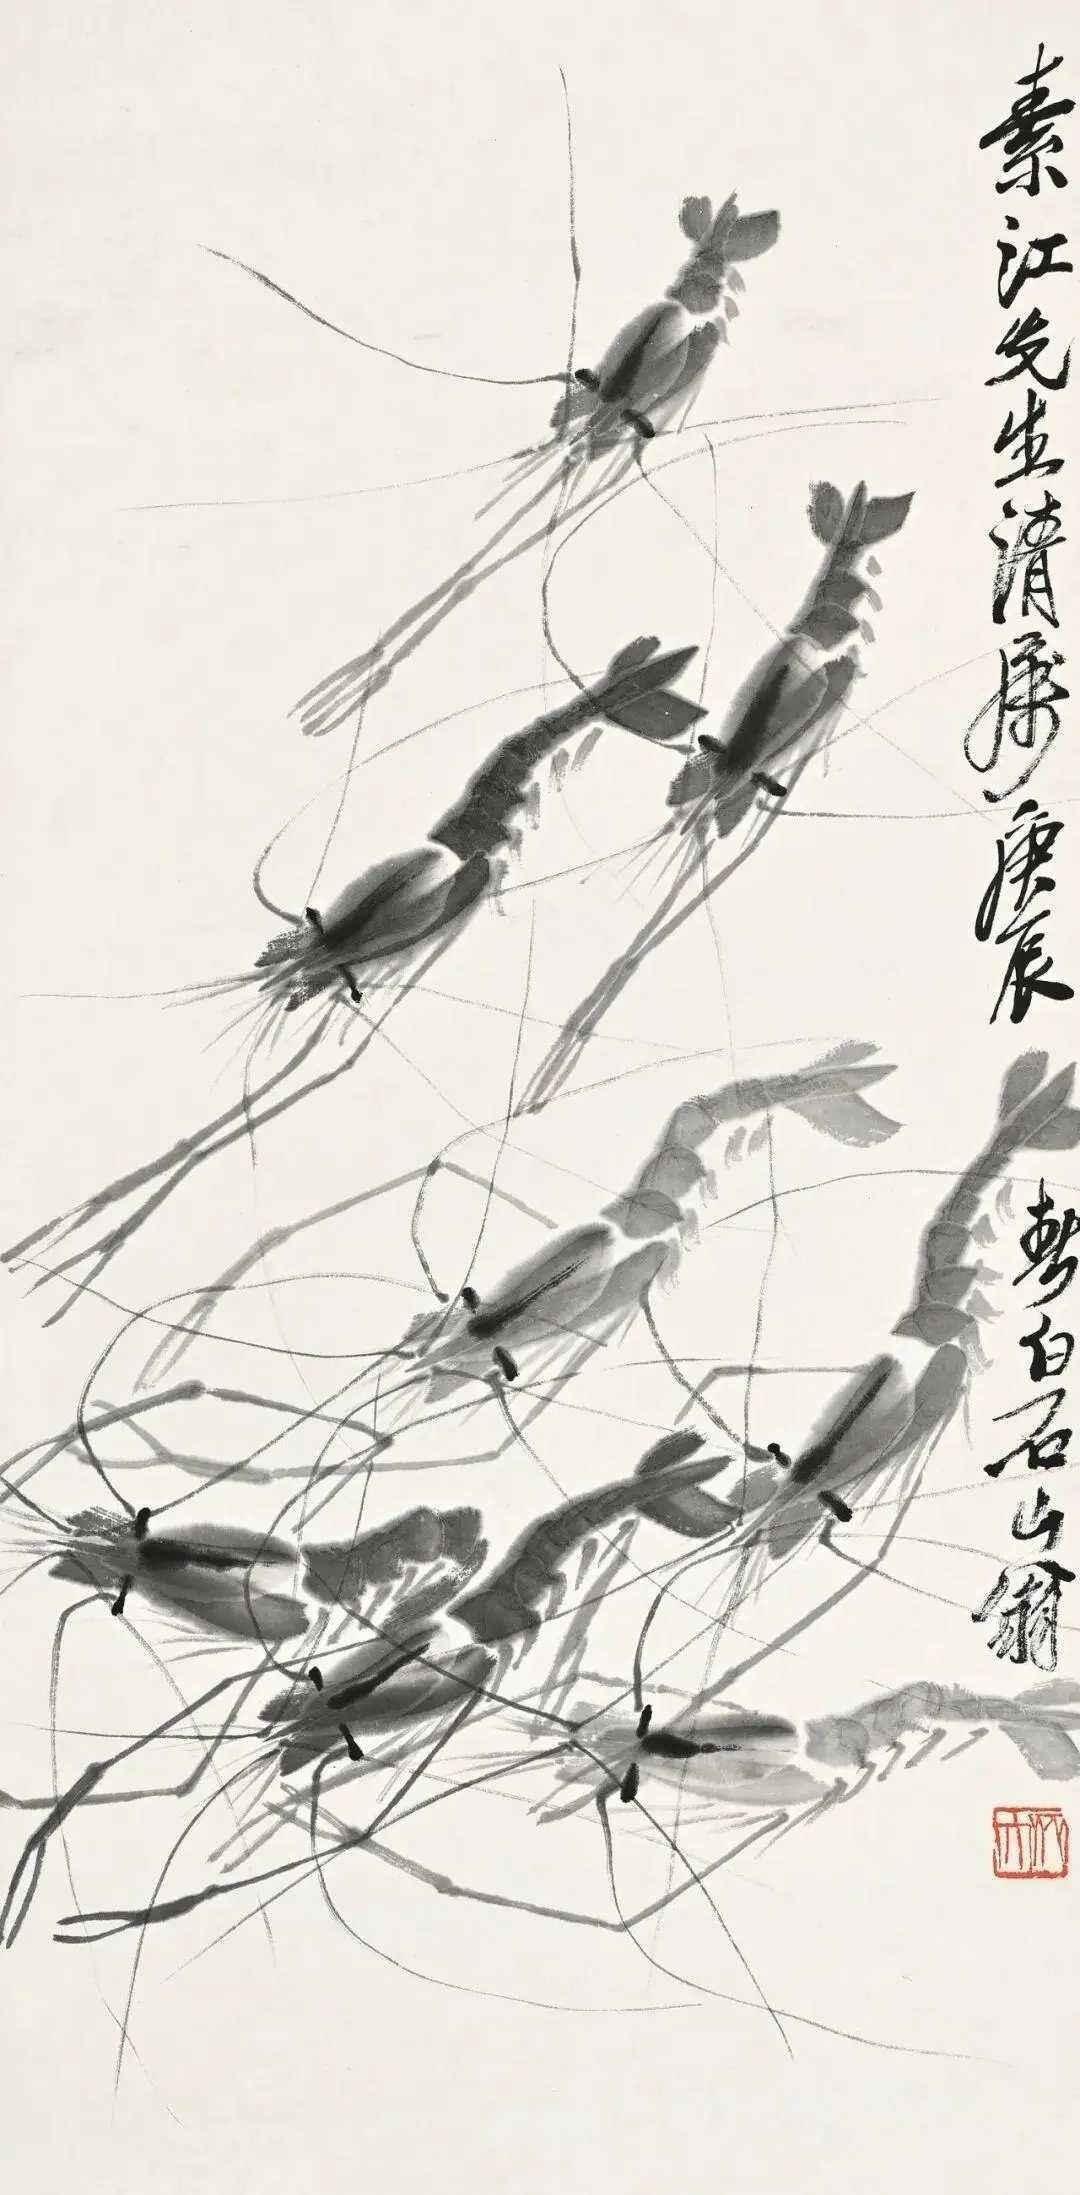 素江先生清屬庚辰
春白石山翁